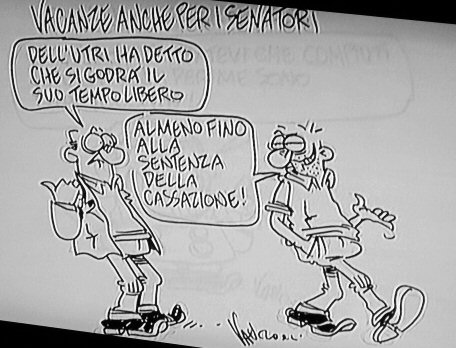 VACANZE ANCHE PER I SENATORI
DELL'UTRI HA DETTO
CHE SI GODRÀ IL
SUO TEMPO LIBERO
ALMENO FINO
ALLA
SENTENZA
DELLA
CASSAZIONE!